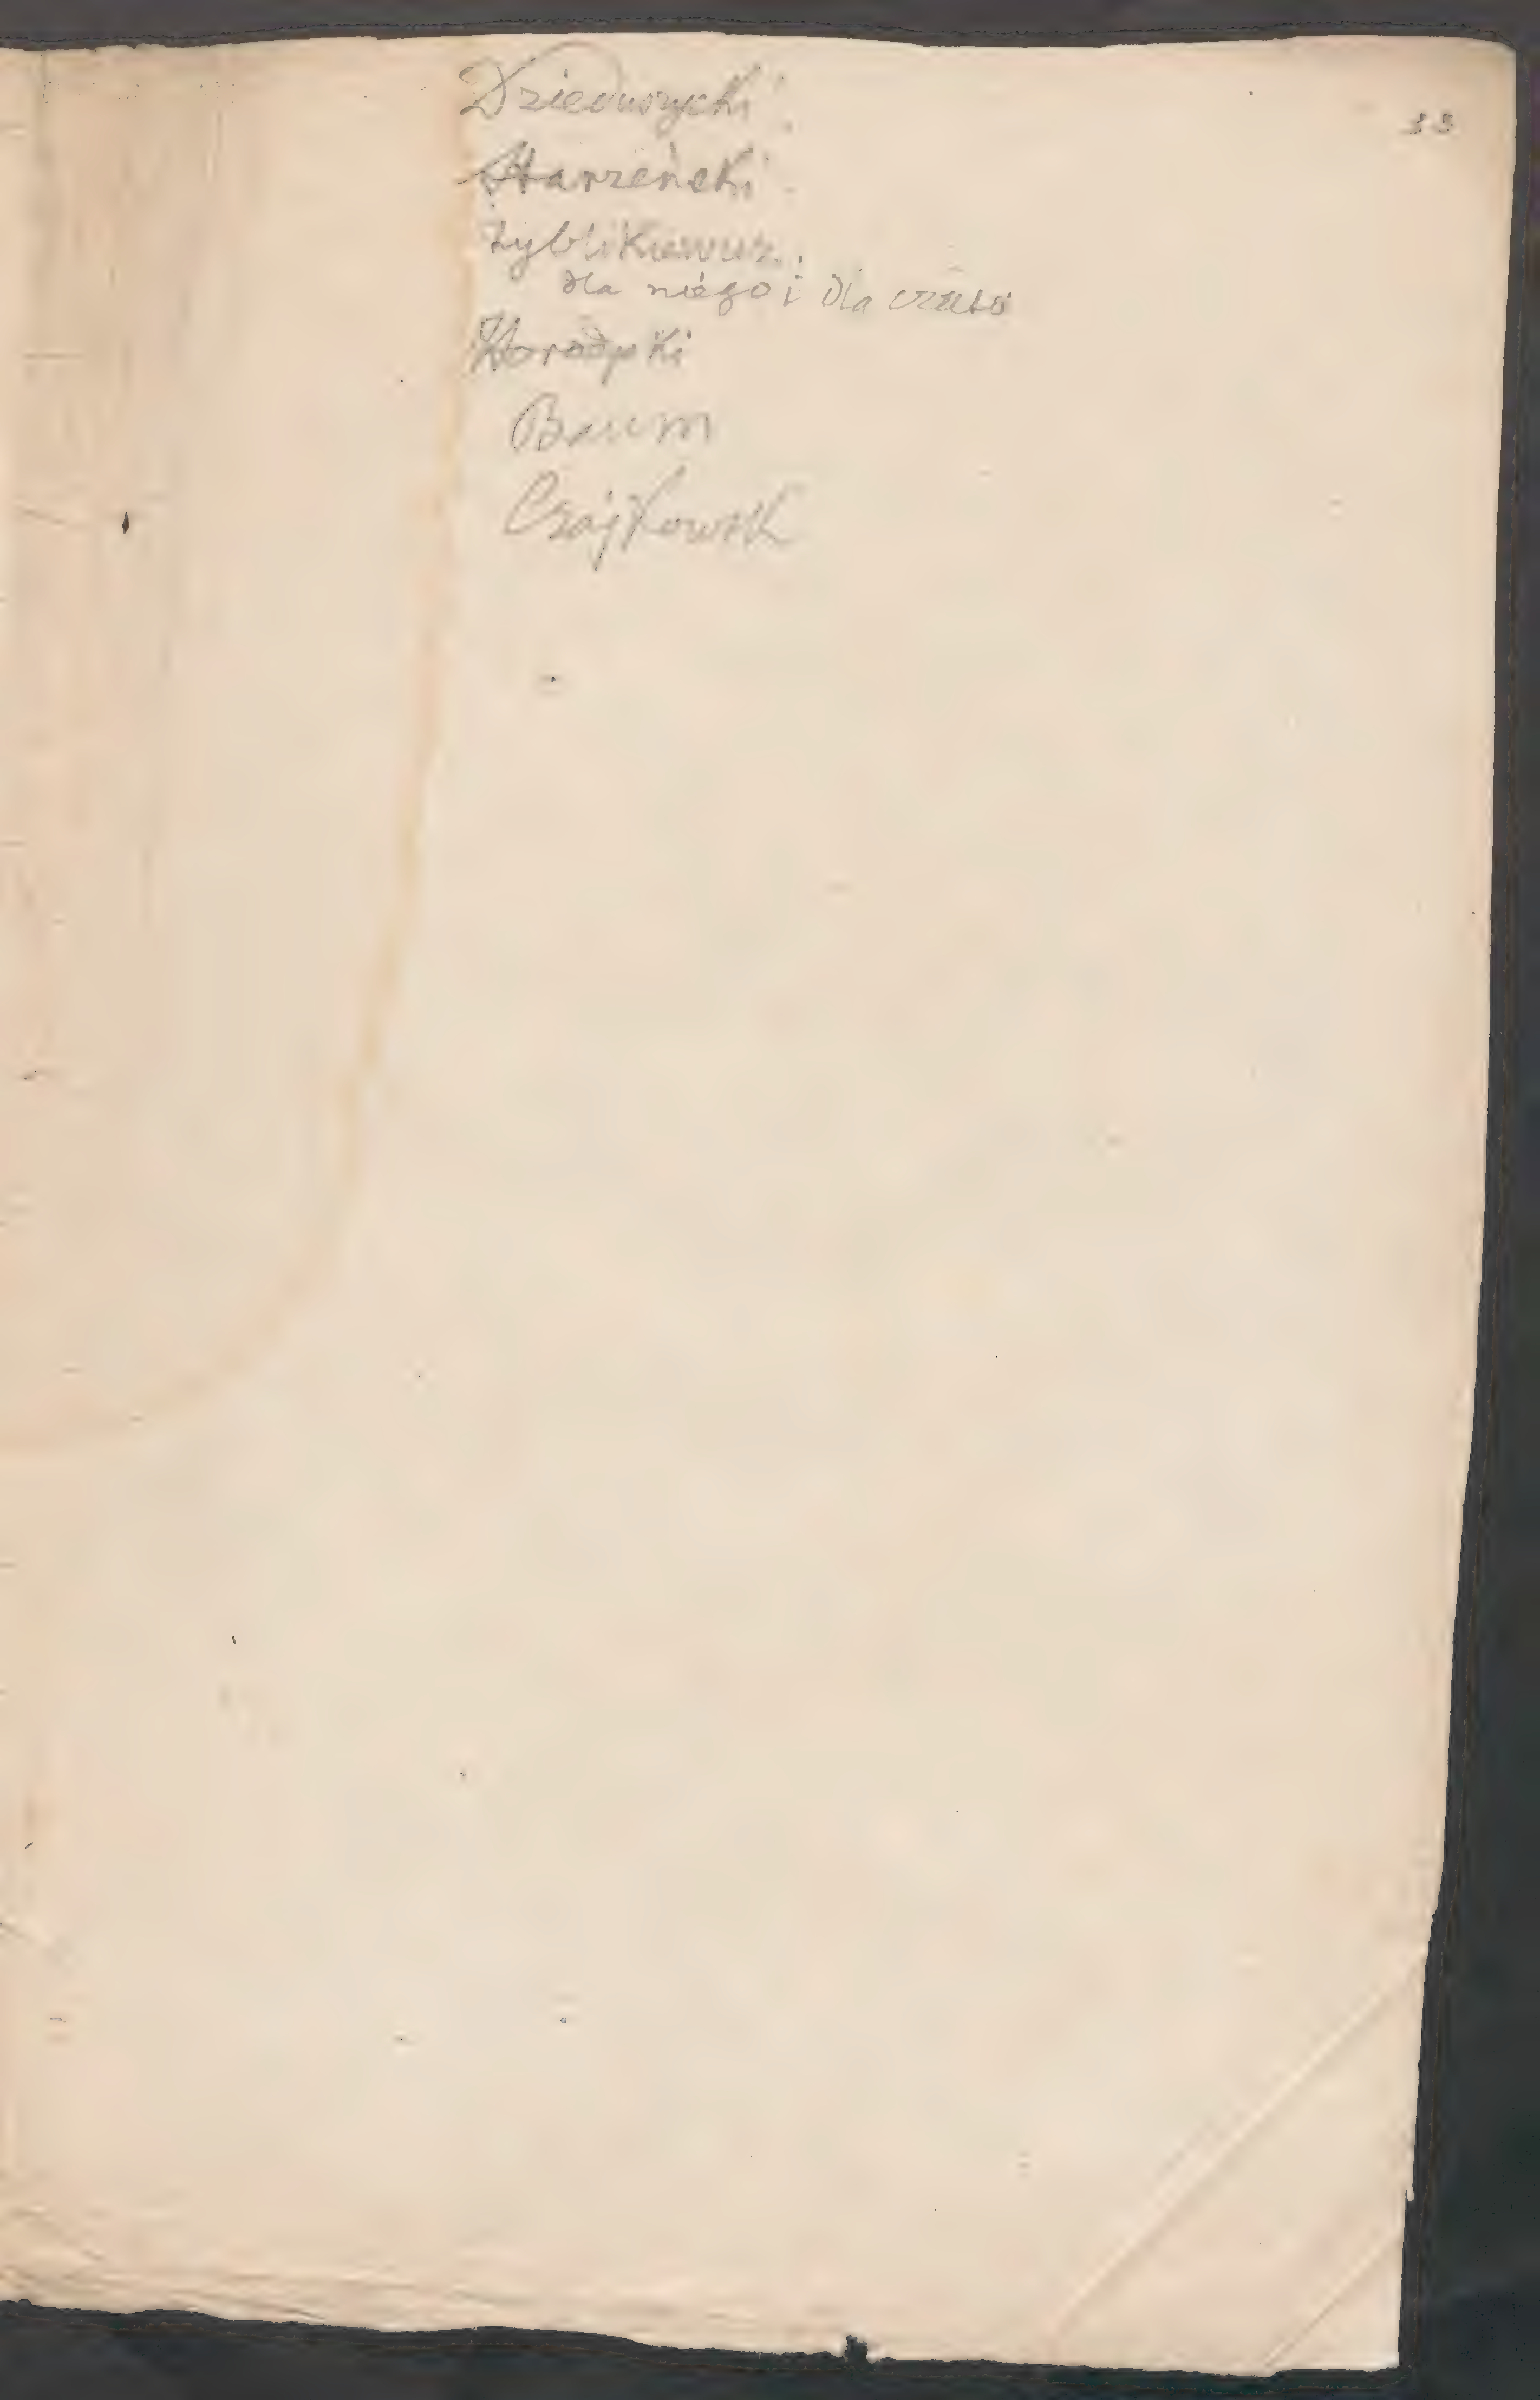 33
Dzieduszycki
Starzeński
Zyblikiewicz.
dla niego i dla czasu
Horodyski
Baum
Czajkowsk